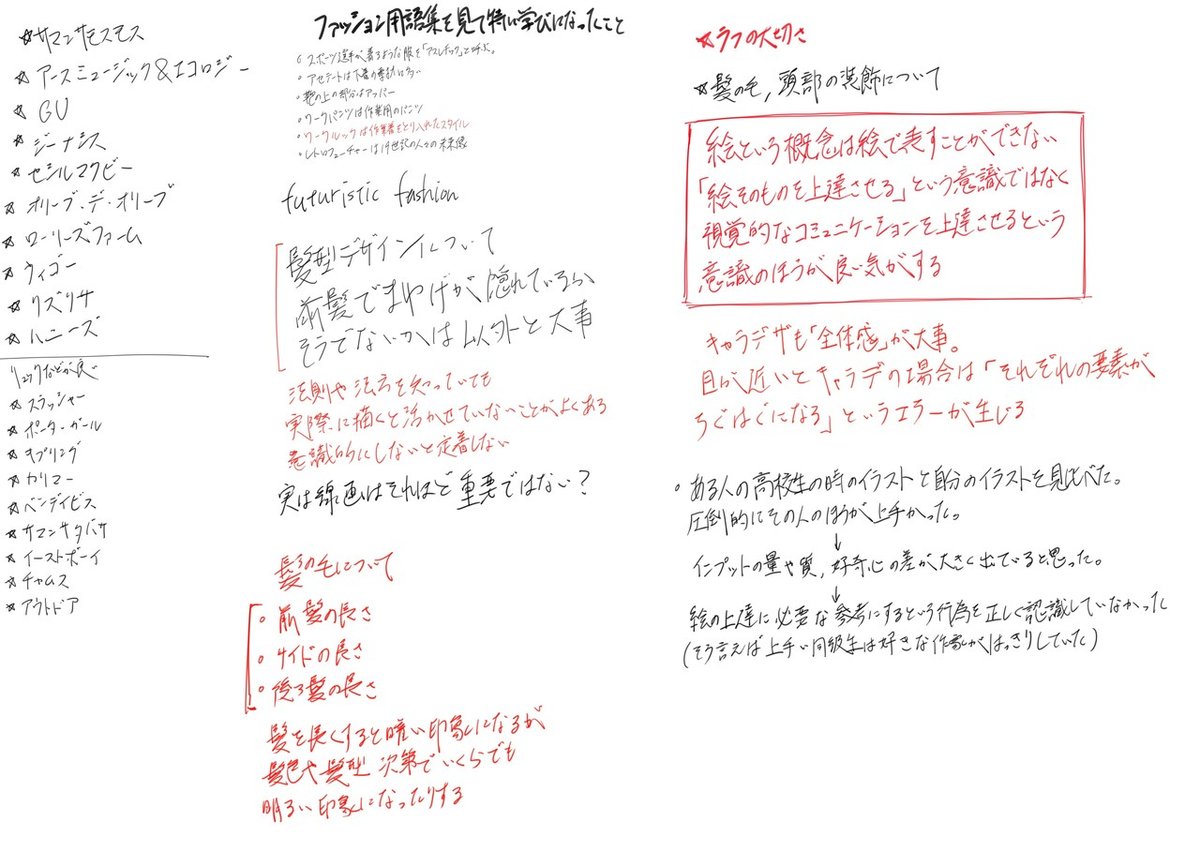 ☆サマンサモスモス
☆アースミュージック&エコロジー
☆GU
☆ジーナシス
☆セシルマクビー
☆オリーブ・デ・オリーブ
☆ローリーズファーム
☆ウィゴー
☆リズリサ
☆ハニーズ
リュックなどが良い
☆スラッシャー
☆ポーターガール
☆カリマー
☆ベンデイビス
☆サマンサタバサ
☆イーストボーイ
☆チャムス
☆アウトドア
ファッション用語集を見て特に学びになったこと
・スポーツ選手が着るような服を「アスレチック」と呼ぶ。
・アセテートは下着の裏地に多い
・靴の上の部分はアッパー
・ワークパンツは作業用のパンツ
・ワークルックは作業着をとり入れたスタイル
・レトロフューチャーは19世紀の人々の未来像
futuristic fashion
髪型デザインについて
前髪でまゆげが隠れているか、
そうでないかは以外と大事
法則や法方を知っていても
実際に描くと活かせていないことがよくある
意識的にしないと定着しない
実は線画はそれほど重要ではない?
髪の毛について
・前髪の長さ
・サイドの長さ
・後ろ髪の長さ
髪を長くすると暗い印象になるが
髪色や髪型次第でいくらでも
明るい印象になったりする
☆ラフの大切さ
☆髪の毛,頭部の装飾について
絵という概念は絵で表すことができない
「絵そのものを上達させる」という意識ではなく
視覚的なコミュニケーションを上達させるという
意識のほうが良い気がする
キャラデザも「全体感」が大事。
目が近いとキャラデの場合は「それぞれの要素が
ちぐはぐになる」というエラーが生じる
・ある人の高校生の時のイラストと自分のイラストを見比べた。
圧倒的にその人のほうが上手かった。
↓
インプットの量や質,好奇心の差が大きく出ていると思った。
↓
絵の上達に必要な参考にするという行為を正しく認識していなかった
(そう言えば上手い同級生は好きな作家がはっきりしていた)